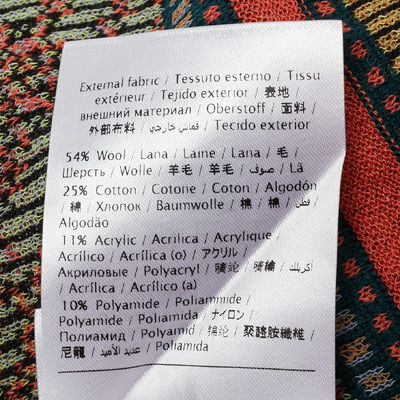 External fabric / Tessuto esterno / Tissu
extérieur / Tejido exterior / 表地 /
внешний материал / Oberstoff / 面料 /
外部布料 / قماش خارجي / Tecido exterior
54% Wool / Lana / Laine / Lana / 毛 /
Шерсть / Wolle / 羊毛 / 羊毛 / صوف / Lã
25% Cotton / Cotone / Coton / Algodón
/ 綿 / Хлопок / Baumwolle / 棉 / 棉 / قطن /
Algodão
11% Acrylic / Acrilica / Acrylique /
Acrílico / Acrílica (o) / アクリル /
Акриловые / Polyacryl / 腈纶 / 腈綸 / أكريلك /
Acrílico / Acrílico (a)
10% Polyamide / Poliammide /
Polyamide / Poliamida / ナイロン /
Полиамид / Polyamid / 锦纶 / 聚醯胺纖維 /
尼龍 / عديد الأميد / Poliamida